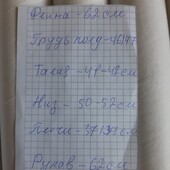 Длина - 62 см
Грудь полу - 46/47
Талия - 41-42 см
Низ - 50-52 см
Плечи - 37/39 см
Рукав - 62 см